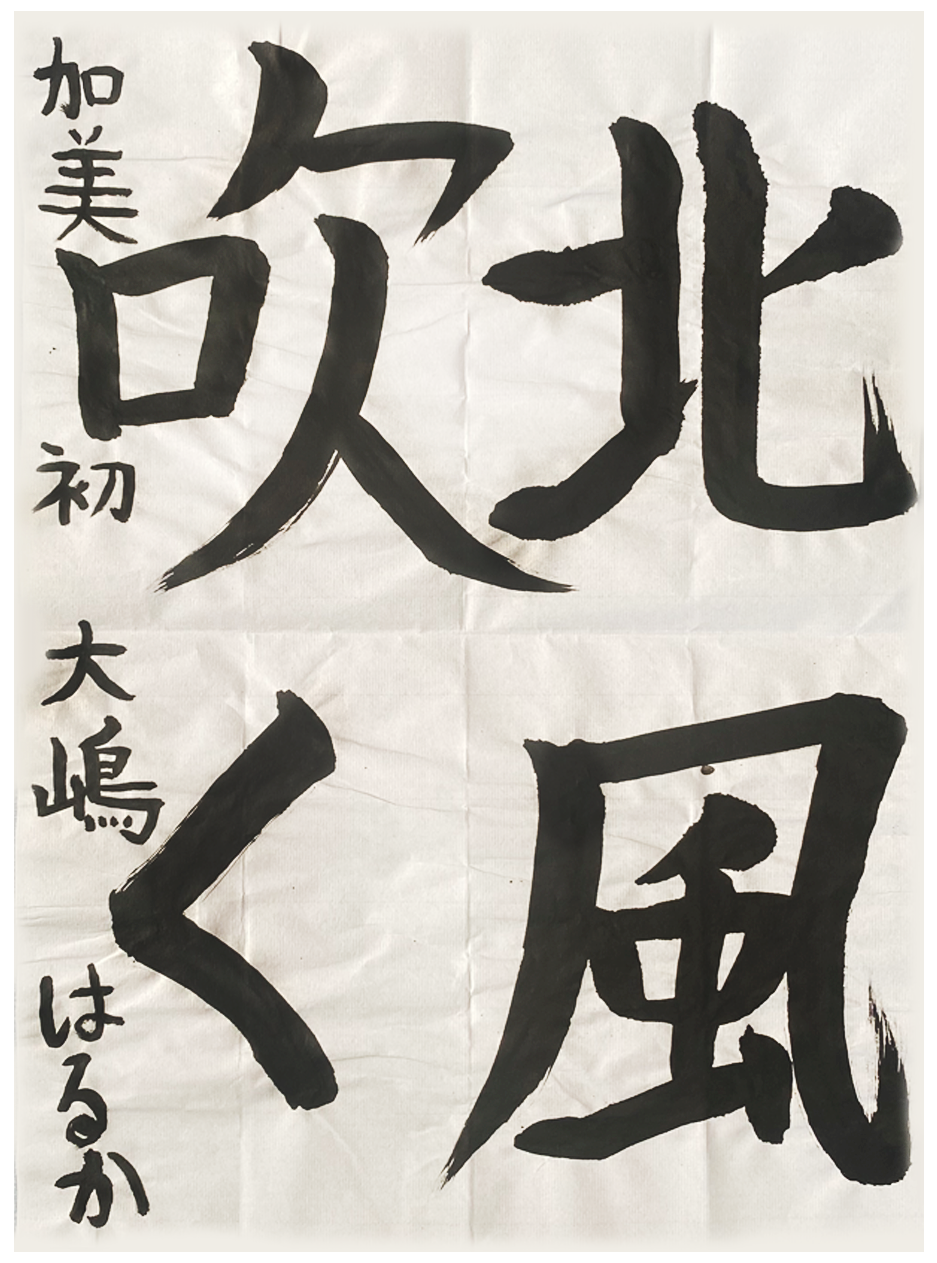 北風
吹く
加美 初 大嶋 はるか